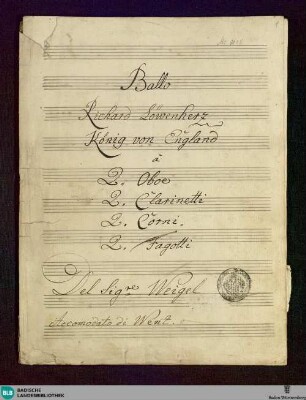 Ballo
Richard Löwenherz
König von England
à
2. Oboe
2. Clarinetti
2. Corni.
2. Fagotti
Del Sigre Weigel
Accomodato di Went.
BLB
BADISCHE
LANDESBIBLIOTHEK
Baden-Württemberg